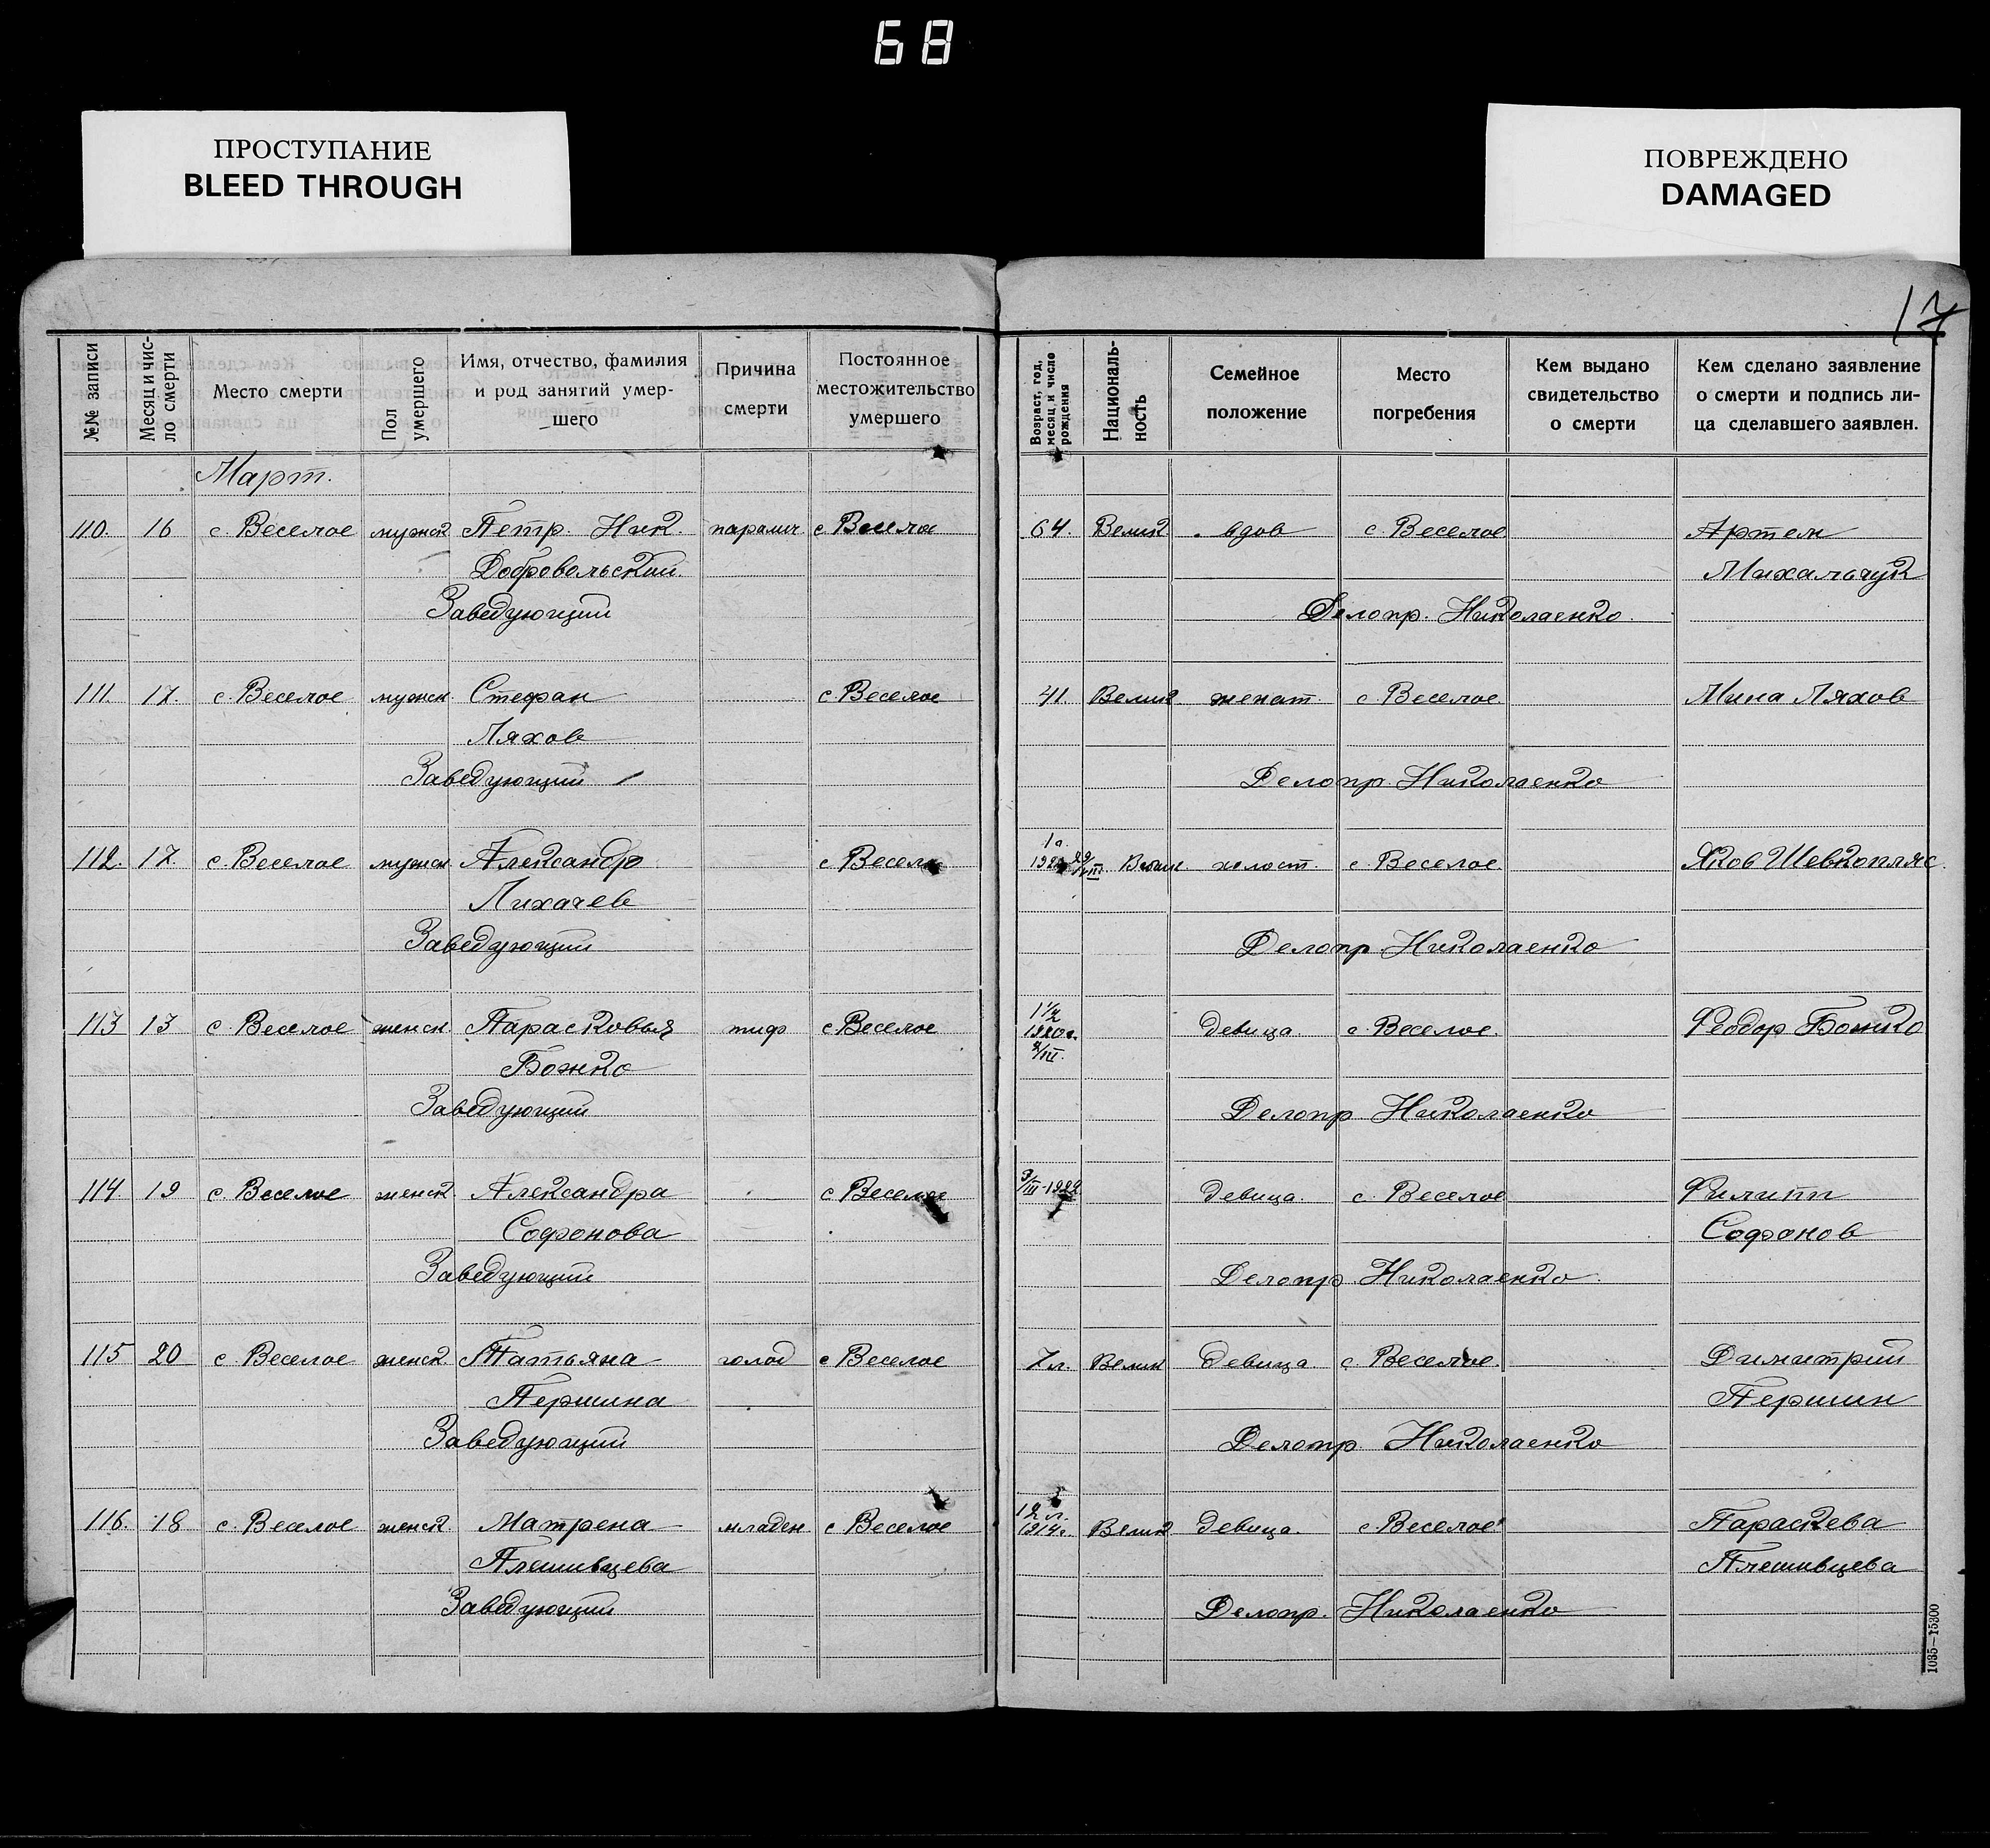 68
ПРОСТУПАНИЕ
BLEED THROUGH
ПОВРЕЖДЕНО
DAMAGED
17
№№ записи
Месяц и чис-
ло смерти
Место смерти
Пол
умершего
Имя, отчество, фамилия
и род занятий умер-
шего
Причина
смерти
Постоянное
местожительство
умершего
Возраст, год,
месяц и число
рождения
Националь-
ность
Семейное
положение
Место
погребения
Кем выдано
свидетельство
о смерти
Кем сделано заявление
о смерти и подпись ли-
ца сделавшего заявлен.
Март.
110. 16 с. Веселое мужск Петр. Ник. паралич с Веселое 64. Велик. вдов с. Веселое Артем
Добровольский. Михальчук
Заведующий Делопр. Николаенко.
111. 17. с. Веселое мужск. Стефан с. Веселое 41. Велик. женат. с Веселое. Мина Ляхов
Ляхов
Заведующий Делопр. Николаенко
112. 17. с. Веселое мужск. Александр с Веселое 1 г. Велик. холост. с. Веселое. Яков Шевкопляс.
Лихачев
Заведующий Делопр. Николаенко
113 13 с. Веселое женск. Парасковья тиф с Веселое 1½ 1920 г. 8/III. девица. с. Веселое. Феодор Божко
Божко
Заведующий Делопр. Николаенко
114. 19 с. Веселое женск. Александра с Веселое 3/III-1922 девица. с. Веселое Филипп
Софонова Софонов
Заведующий Делопр. Николаенко.
115 20 с. Веселое женск. Татьяна голод с Веселое 7 л. Велик девица с. Веселое. Димитрий
Першина Першин
Заведующий Делопр. Николаенко
116. 18 с. Веселое женск. Матрена младен. с Веселое 12 л. 1914 г. Велик девица. с Веселое Параскева
Плешивцева Плешивцева
Заведующий Делопр. Николаенко
1035—15300